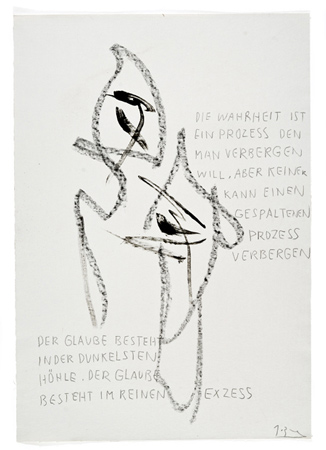 DIE WAHRHEIT IST
EIN PROZESS DEN
MAN VERBERGEN
WILL. ABER KEINER
KANN EINEN
GESPALTENEN
PROZESS
VERBERGEN
DER GLAUBE BESTEHT
IN DER DUNKELSTEN
HÖHLE. DER GLAUBE
BESTEHT IM REINEN EXZESS